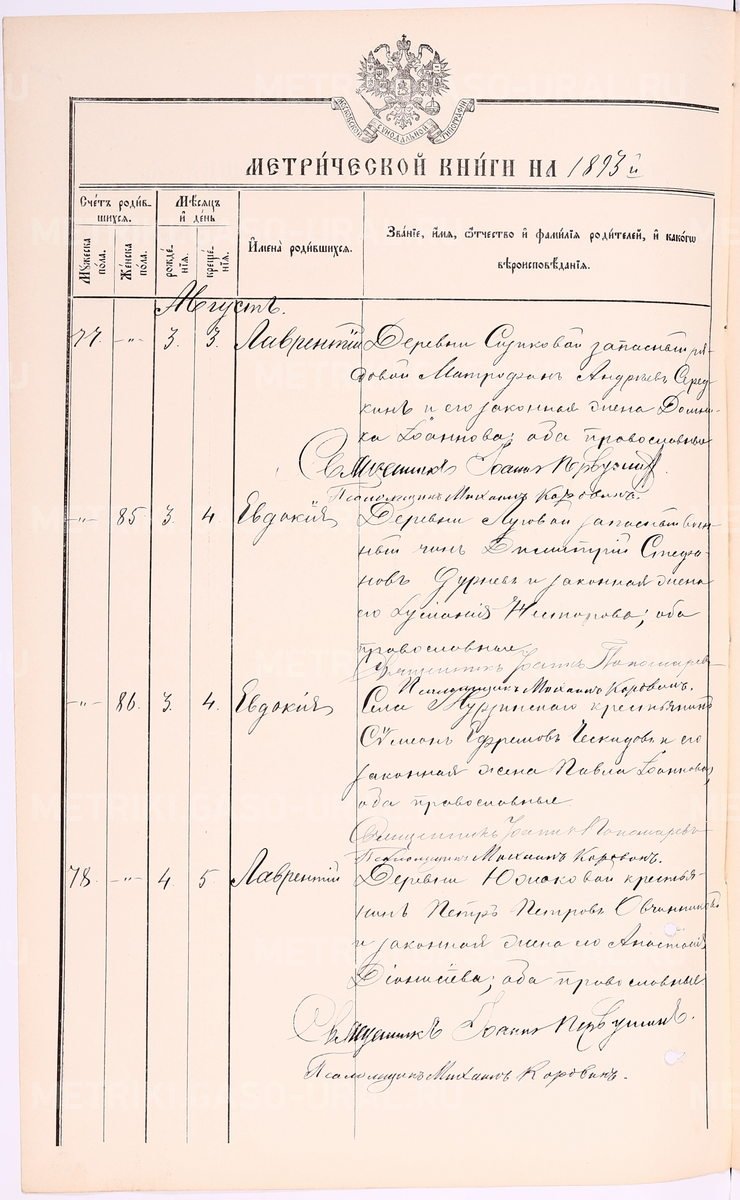 МОСКОВСКОЙ СѴНОДАЛЬНОЙ ТИПОГРАФІИ
МЕТРИ́ЧЕСКОЙ КНИ́ГИ НА 1893 й
Сче́тъ роди́в-
шихся.
Му́жеска по́ла.
Же́нска по́ла.
Мѣ́сяцъ и҆ де́нь
рожде́нія.
креще́нія.
И҆мена̀ роди́вшихся.
Зва́ніе, и҆́мя, ѻ҆́тчество и҆ фами́лія роди́телей, и҆ како́гѡ
вѣроисповѣ́данія.
Августъ.
77. -"- 3. 3. Лаврентій Деревни запасный ря-
довой Митрофанъ Андреевъ Серед-
кинъ и его законная жена Домни-
ка Іоаннова; оба православные
Священникъ Іоаннъ Первушинъ
Псаломщикъ Михаилъ Коровинъ.
-"- 85 3. 4. Евдокія Деревни Луговой запасный воен-
ный чинъ Димитрій Стефа-
новъ Дурневъ и законная жена
его Несторова; оба
православные
Священникъ Іоаннъ Пономаревъ
Псаломщикъ Михаилъ Коровинъ.
-"- 86. 3. 4. Евдокія Села крестьянинъ
Сѵмеонъ Ефремовъ Ческидовъ и его
законная жена Павла Іоаннова,
оба православные
Священникъ Іоаннъ Пономаревъ
Псаломщикъ Михаилъ Коровинъ.
78. -"- 4. 5. Лаврентій Деревни Южаковой крестья-
нинъ Петръ Петровъ Овчинниковъ
и законная жена его Анастасія
Діонисіева; оба православные
Священникъ Іоаннъ Первушинъ.
Псаломщикъ Михаилъ Коровинъ.